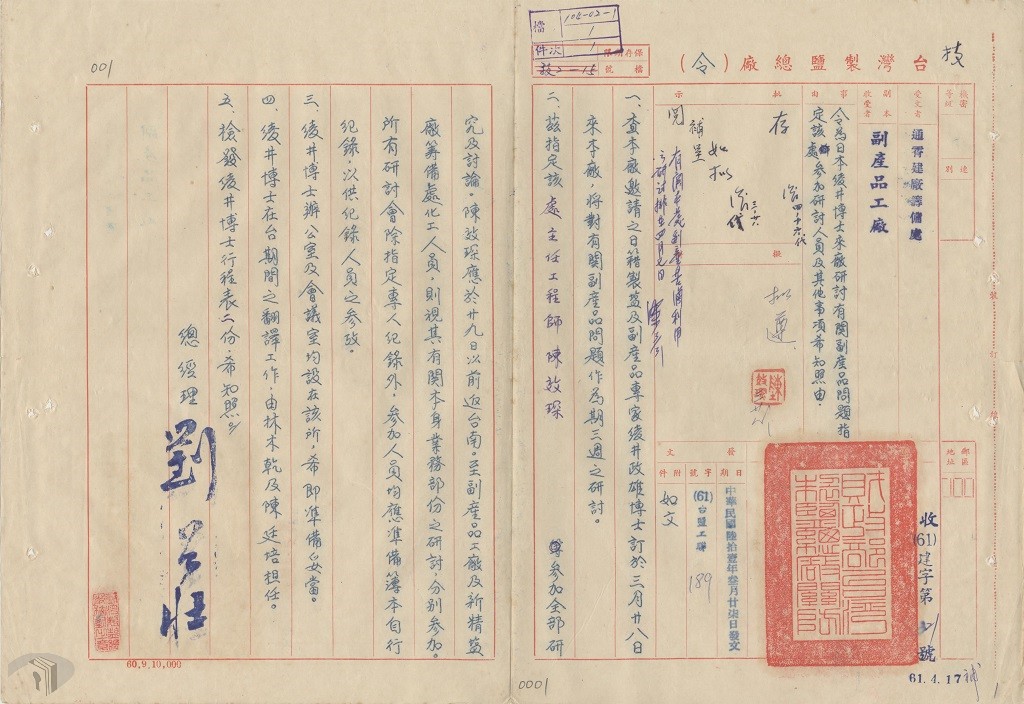 台灣製鹽總廠（令）
技
檔
104-02-1
1
件次
1
保存期限
檔號
設2－15
機密等級
速別
受文者
通霄建廠籌備處
副本收受者
副產品工廠
事由
令為日本綾井博士來廠研討有関副產品問題指
定該處參加研討人員及其他事項希知照由．
批示
存
如擬
閱
補呈
擬
擬遵
郵區地址
發文
日期
字號
附件
中華民國陸拾壹年叁月廿柒日發文
(61)台鹽工聯
189
如文
收(61)建字第
號
61.4.17
一、查本廠邀請之日籍製鹽及副產品專家綾井政雄博士訂於三月廿八日
來本廠，將對有関副產品問題作為期三週之研討。
二、茲指定該處主任工程師陳效琛
參加全部研
究及討論。陳效琛應於廿九日以前返台南。至副產品工廠及新精鹽
廠籌備處化工人員，則視其有関本身業務部份之研討，分別參加。
所有研討會除指定專人紀錄外，參加人員均應準備簿本自行
紀錄，以供紀錄人員之參攷。
三、綾井博士辦公室及會議室均設在該所，希即準備妥當。
四、綾井博士在台期間之翻譯工作，由林木乾及陳廷培担任。
五、檢發綾井博士行程表二份，希知照
總經理
劉
60.9.10,000
001
0001
號
訂
線